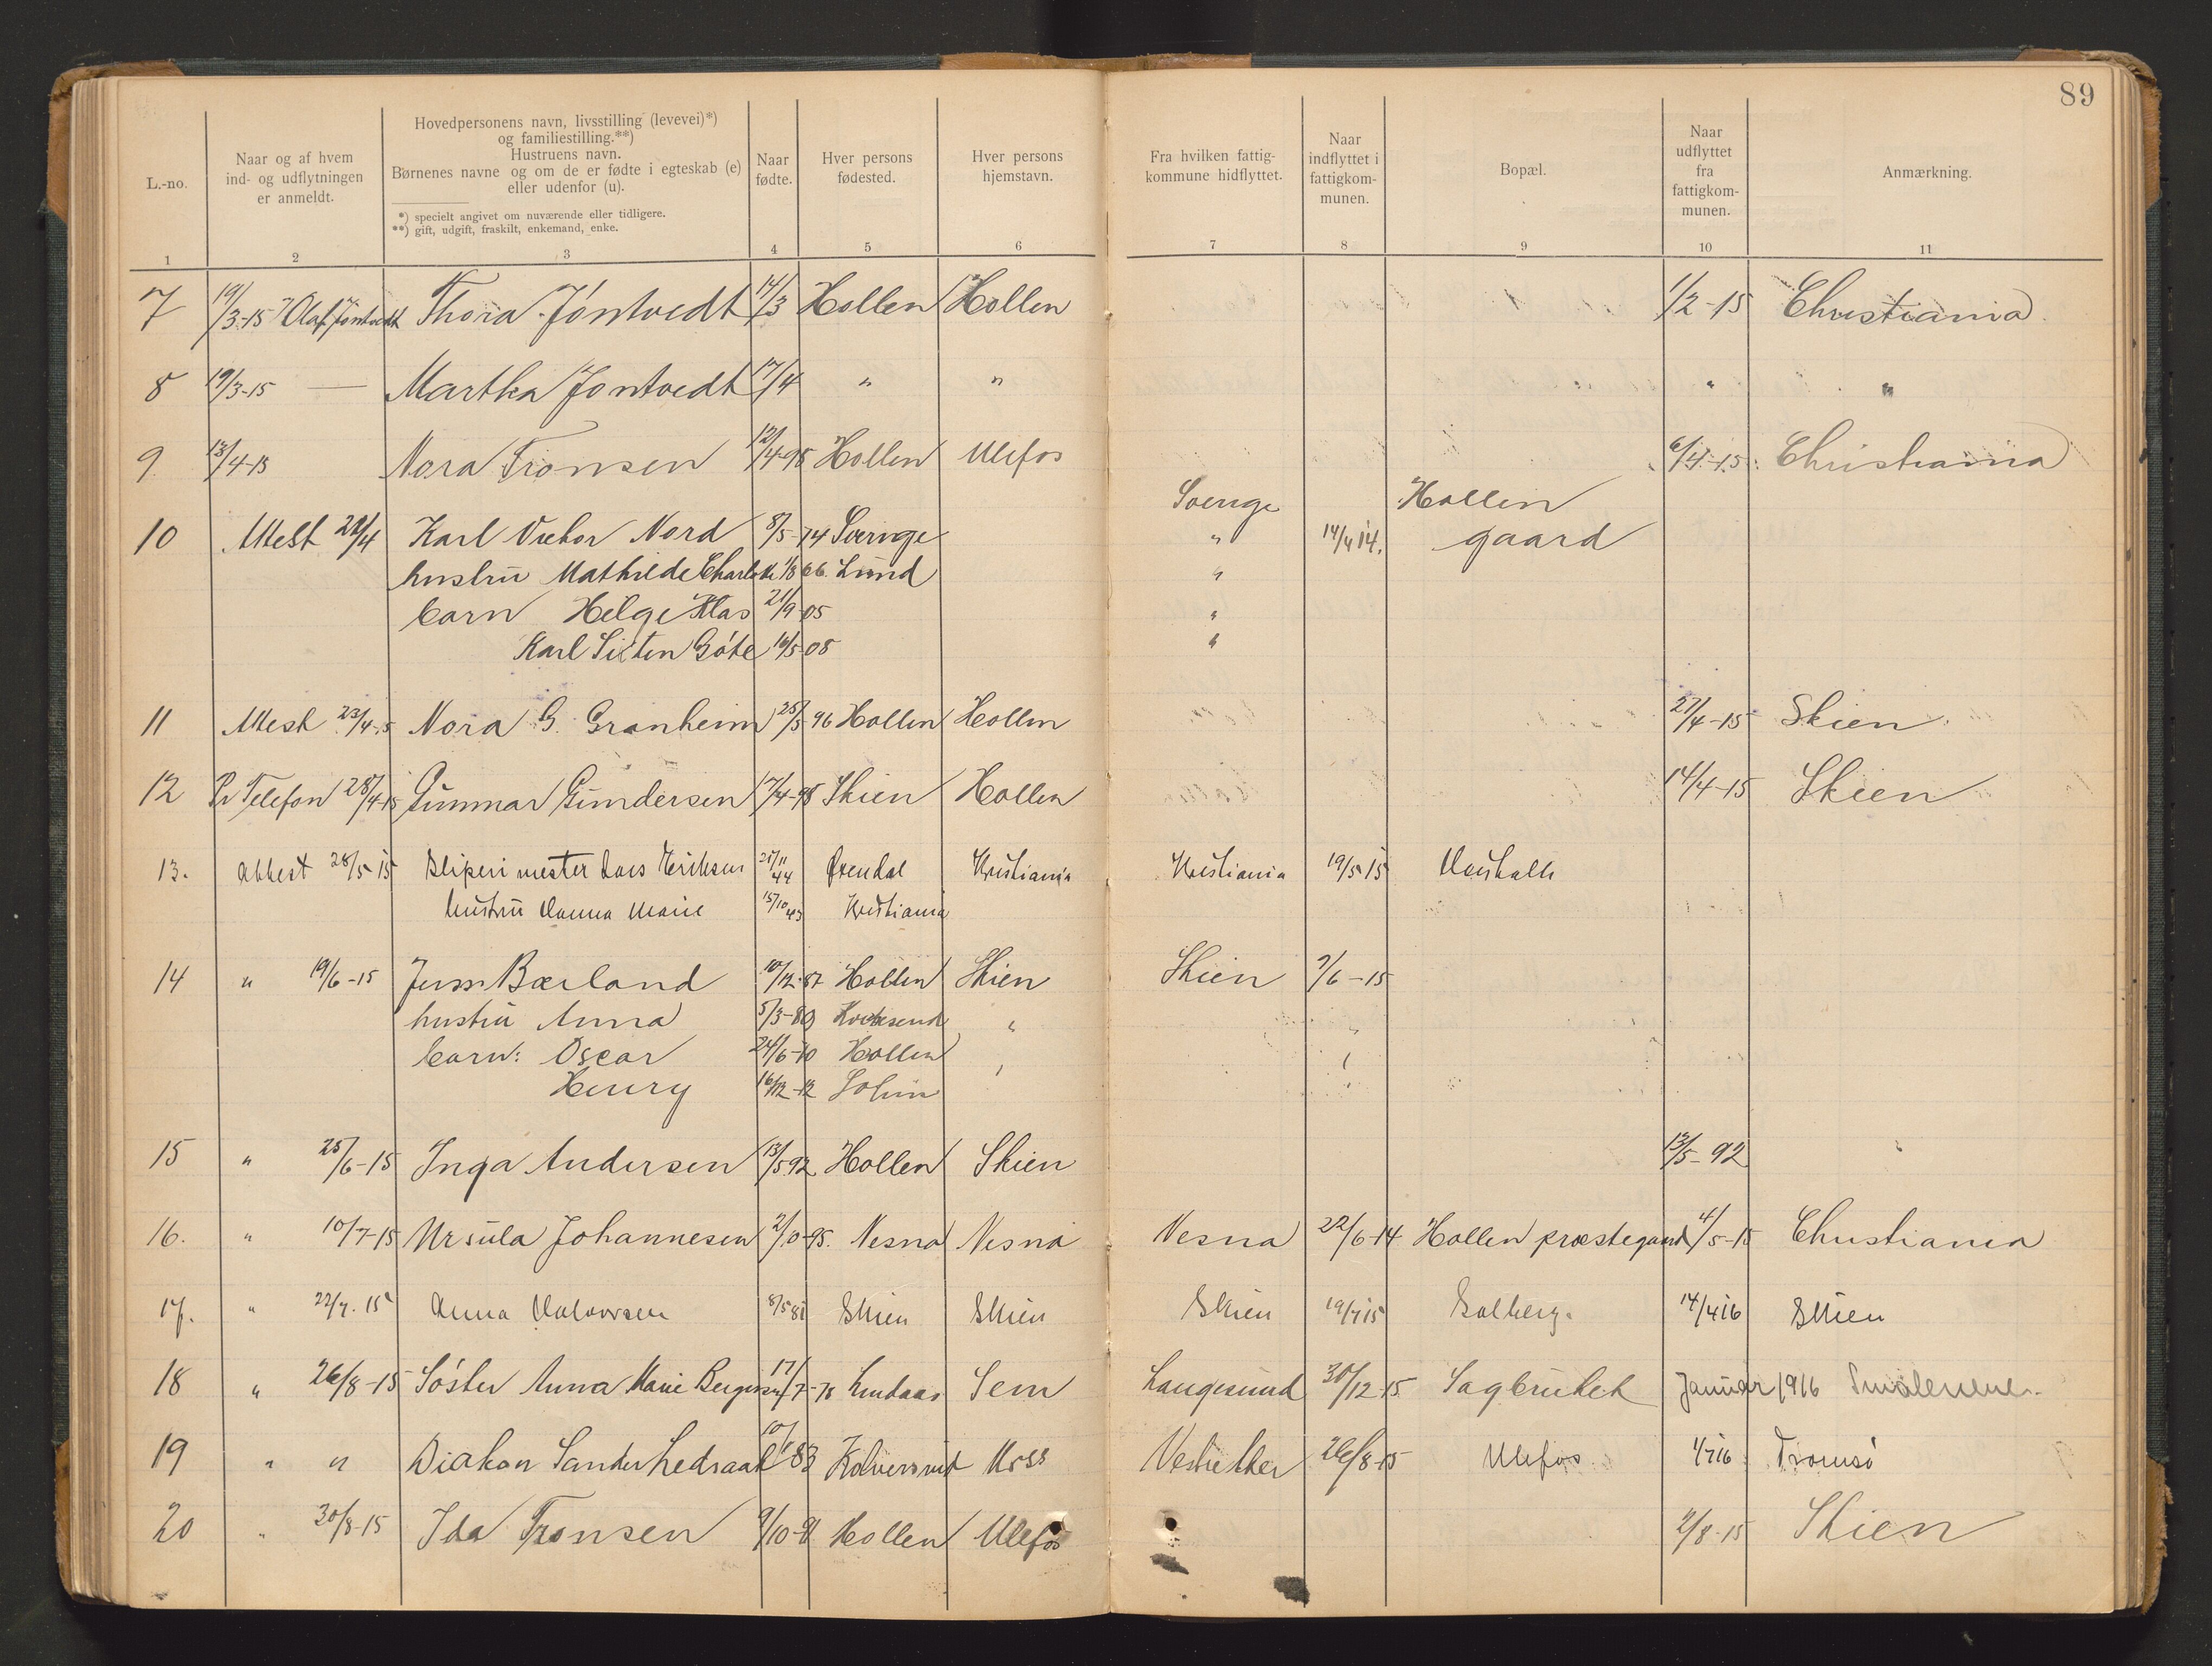 89
L.-no.
Naar og af hvem
ind- og udflytningen
er anmeldt.
Hovedpersonens navn, livsstilling (levevei)*)
og familiestilling.**)
Hustruens navn.
Børnenes navne og om de er fødte i egteskab (e)
eller udenfor (u).
*) specielt angivet om nuværende eller tidligere.
**) gift, udgift, fraskilt, enkemand, enke.
Naar
fødte.
Hver persons
fødested.
Hver persons
hjemstavn.
Fra hvilken fattig-
kommune hidflyttet.
Naar
indflyttet i
fattigkom-
munen.
Bopæl.
Naar
udflyttet
fra
fattigkom-
munen.
Anmærkning.
1 2 3 4 5 6 7 8 9 10 11
7 19/3-15 Olaf Jöntvedt Thora Jöntvedt 14/3 Hollen Hollen 1/2-15 Christiania
8 19/3-15 — Martha Jontvedt 17/4 " " " "
9 13/4-15 Nora Tronsen 12/4-98 Hollen Ulefos 6/4-15 Christiania
Sverige Hollen
10 Attest 29/4 Karl Victor Nord 8/5-74 Sverige " 14/4 14. gaard
hustru Mathilde Charlotte 1/8 66. Lund "
barn Helge Klas 21/9-05 "
Karl Sixten Göte 16/5-08 "
11 Attest 23/4-15 Nora G. Granheim 25/5 96 Hollen Hollen 27/4-15 Skien
12 Pr Telefon 28/4-15 Gunnar Gundersen 17/4-98 Skien Hollen 14/4-15 Skien
13. Attest 28/5 15 Sliperimester Lars Eriksen 27/11 44 Kristiania Kristiania 19/5 15
hustru Hanna Marie 15/10 43 Kristiania
14 " 19/6-15 Jens Bærland 10/12-87 Hollen Skien Skien 7/6-15
hustru Anna 5/3-89 "
barn: Oscar 24/6-10 Hollen
Henry 16/12-12 Solum
15 " 25/6-15 Inga Andersen 13/5 92 Hollen Skien 13/5-92
16. " 10/7-15 Ursula Johannesen 2/10-95. Nesna Nesna Nesna 22/6-14 Hollen præstegaard 4/5-15 Christiania
17. " 22/7. 15 Anna Halvorsen 8/5 81 Skien Skien Skien 19/7 15 Solberg. 14/4 16 Skien
18 " 26/8-15 Söster Anna Marie Bergersen 17/7-78 Lindaas Sem Langesund 30/12-15 Sagbruket Januar 1916 Smålenene.
19 " " Diakon Sander 10/1 83 Moss Vestre Aker 26/8-15 Ulefos 1/7 16 Tromsö
20 " 30/8-15 Ida Tronsen 9/10-91 Hollen Ulefos 2/8-15 Skien